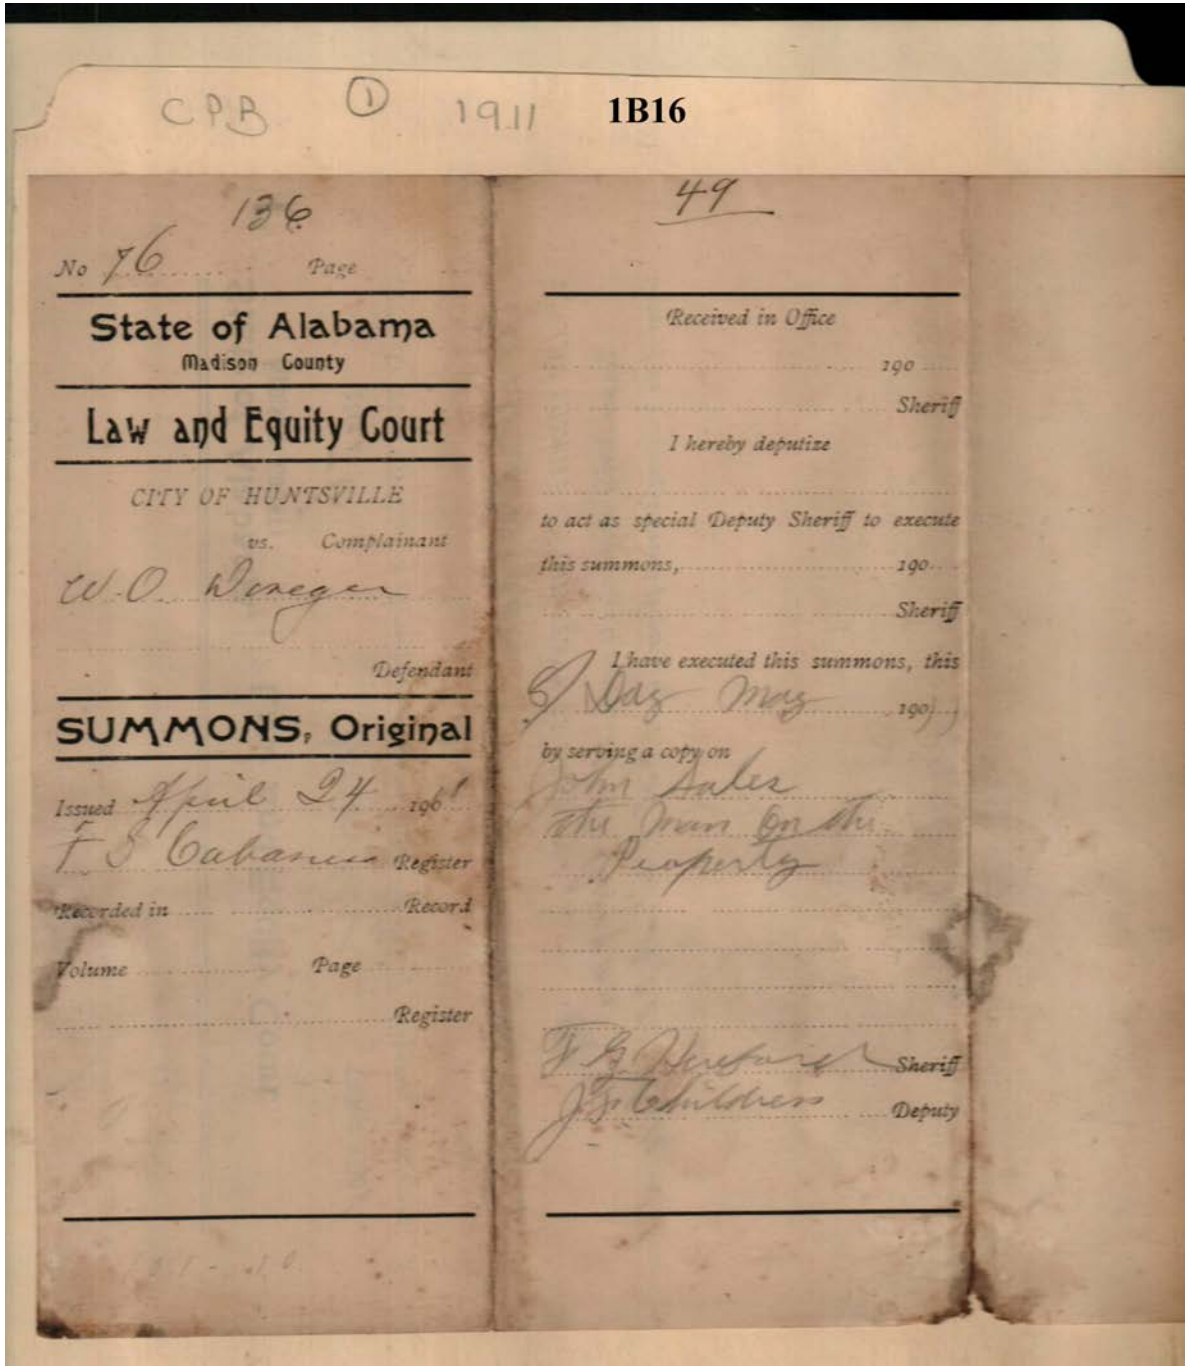 CPB 1 1911 1B16
136
No 76 Page
State of Alabama
Madison County
Law and Equity Court
CITY OF HUNTSVILLE
vs. Complainant
W. O.
Defendant
SUMMONS, Original
Issued April 24 190
F S Cabaniss Register
Recorded in Record
Volume Page
Register
49
Received in Office
190
Sheriff
I hereby deputize
to act as special Deputy Sheriff to execute
this summons, 190
Sheriff
I have executed this summons, this
Day May 190
by serving a copy on
John
the man on the
Property
F. G. Sheriff
Childress Deputy